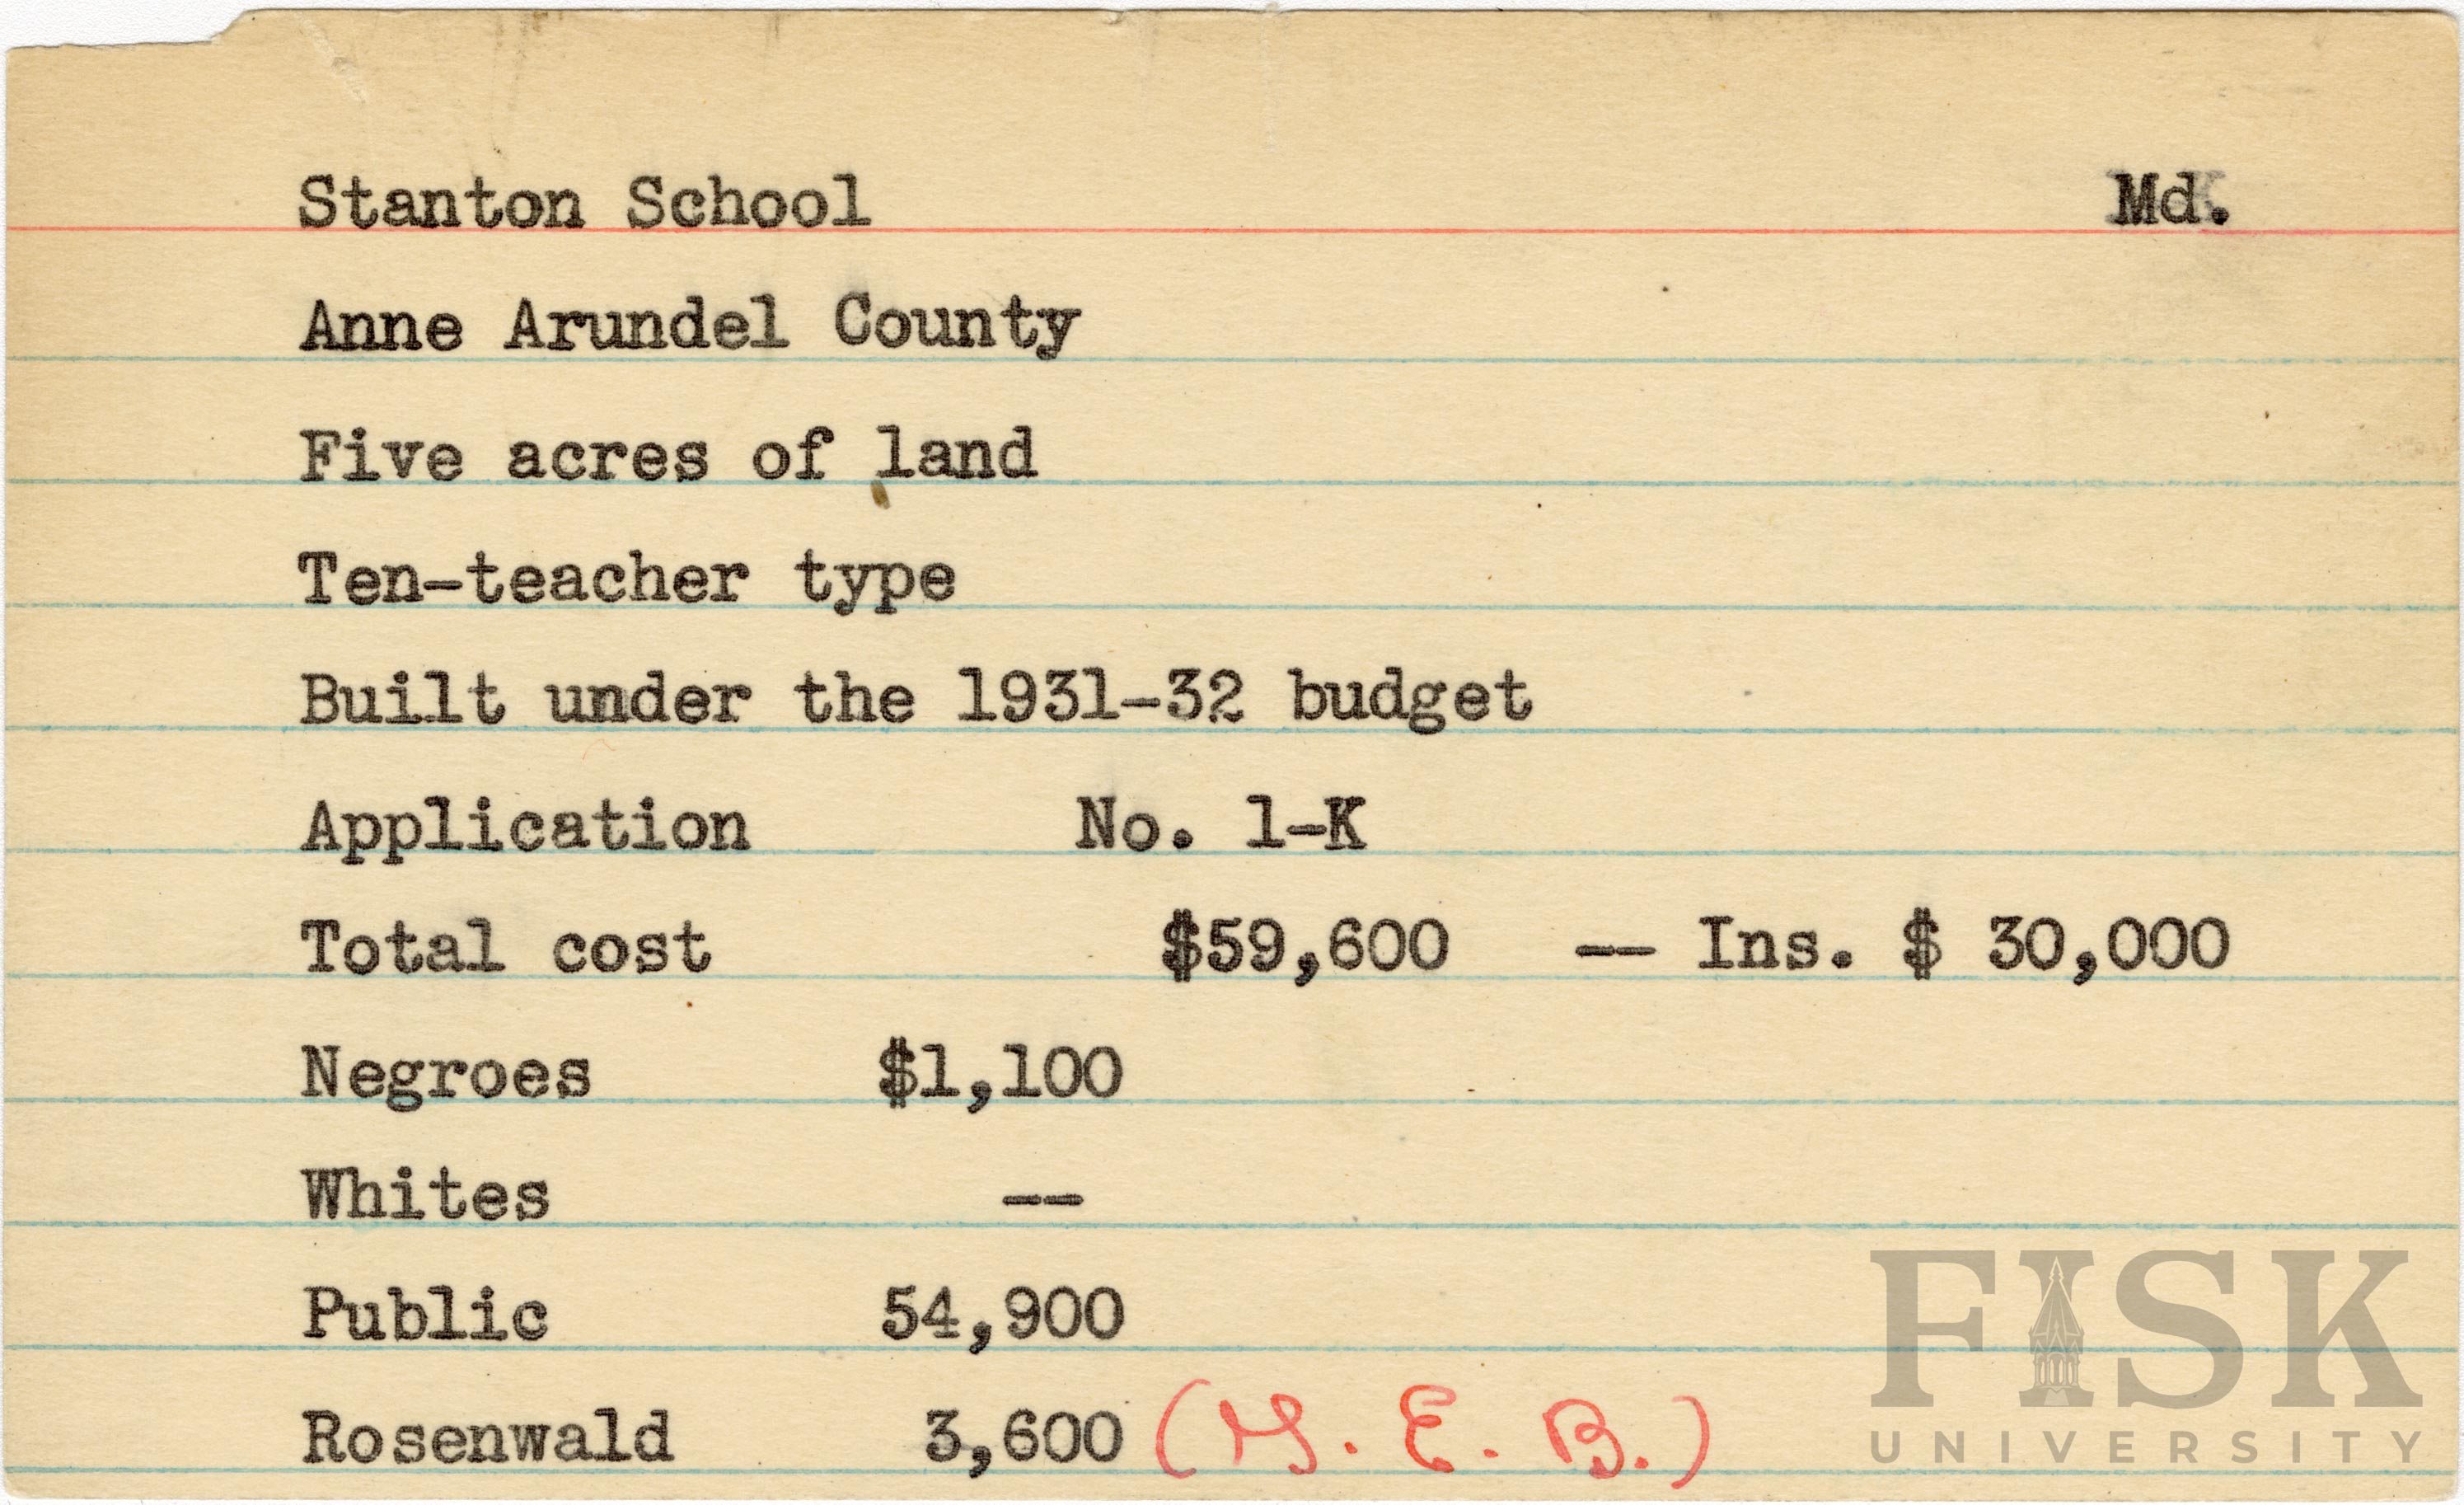 Stanton School Md.
Anne Arundel County
Five acres of land
Ten-teacher type
Built under the 1931-32 budget
Application No. 1-K
Total cost $59,600 -- Ins. $ 30,000
Negroes $1,100
Whites --
Public 54,900
Rosenwald 3,600 (G. E. B.)
FISK
UNIVERSITY